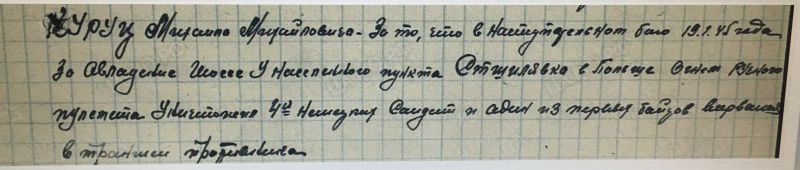 КУРУЦ Михаила Михайловича - За то, что в наступательном бою 19.1.45 года
За овладение шоссе у населенного пункта Стшилявка в Польше огнем ручного
пулемета уничтожено 4й немецких солдат и один из первых ворвался
в траншеи противника